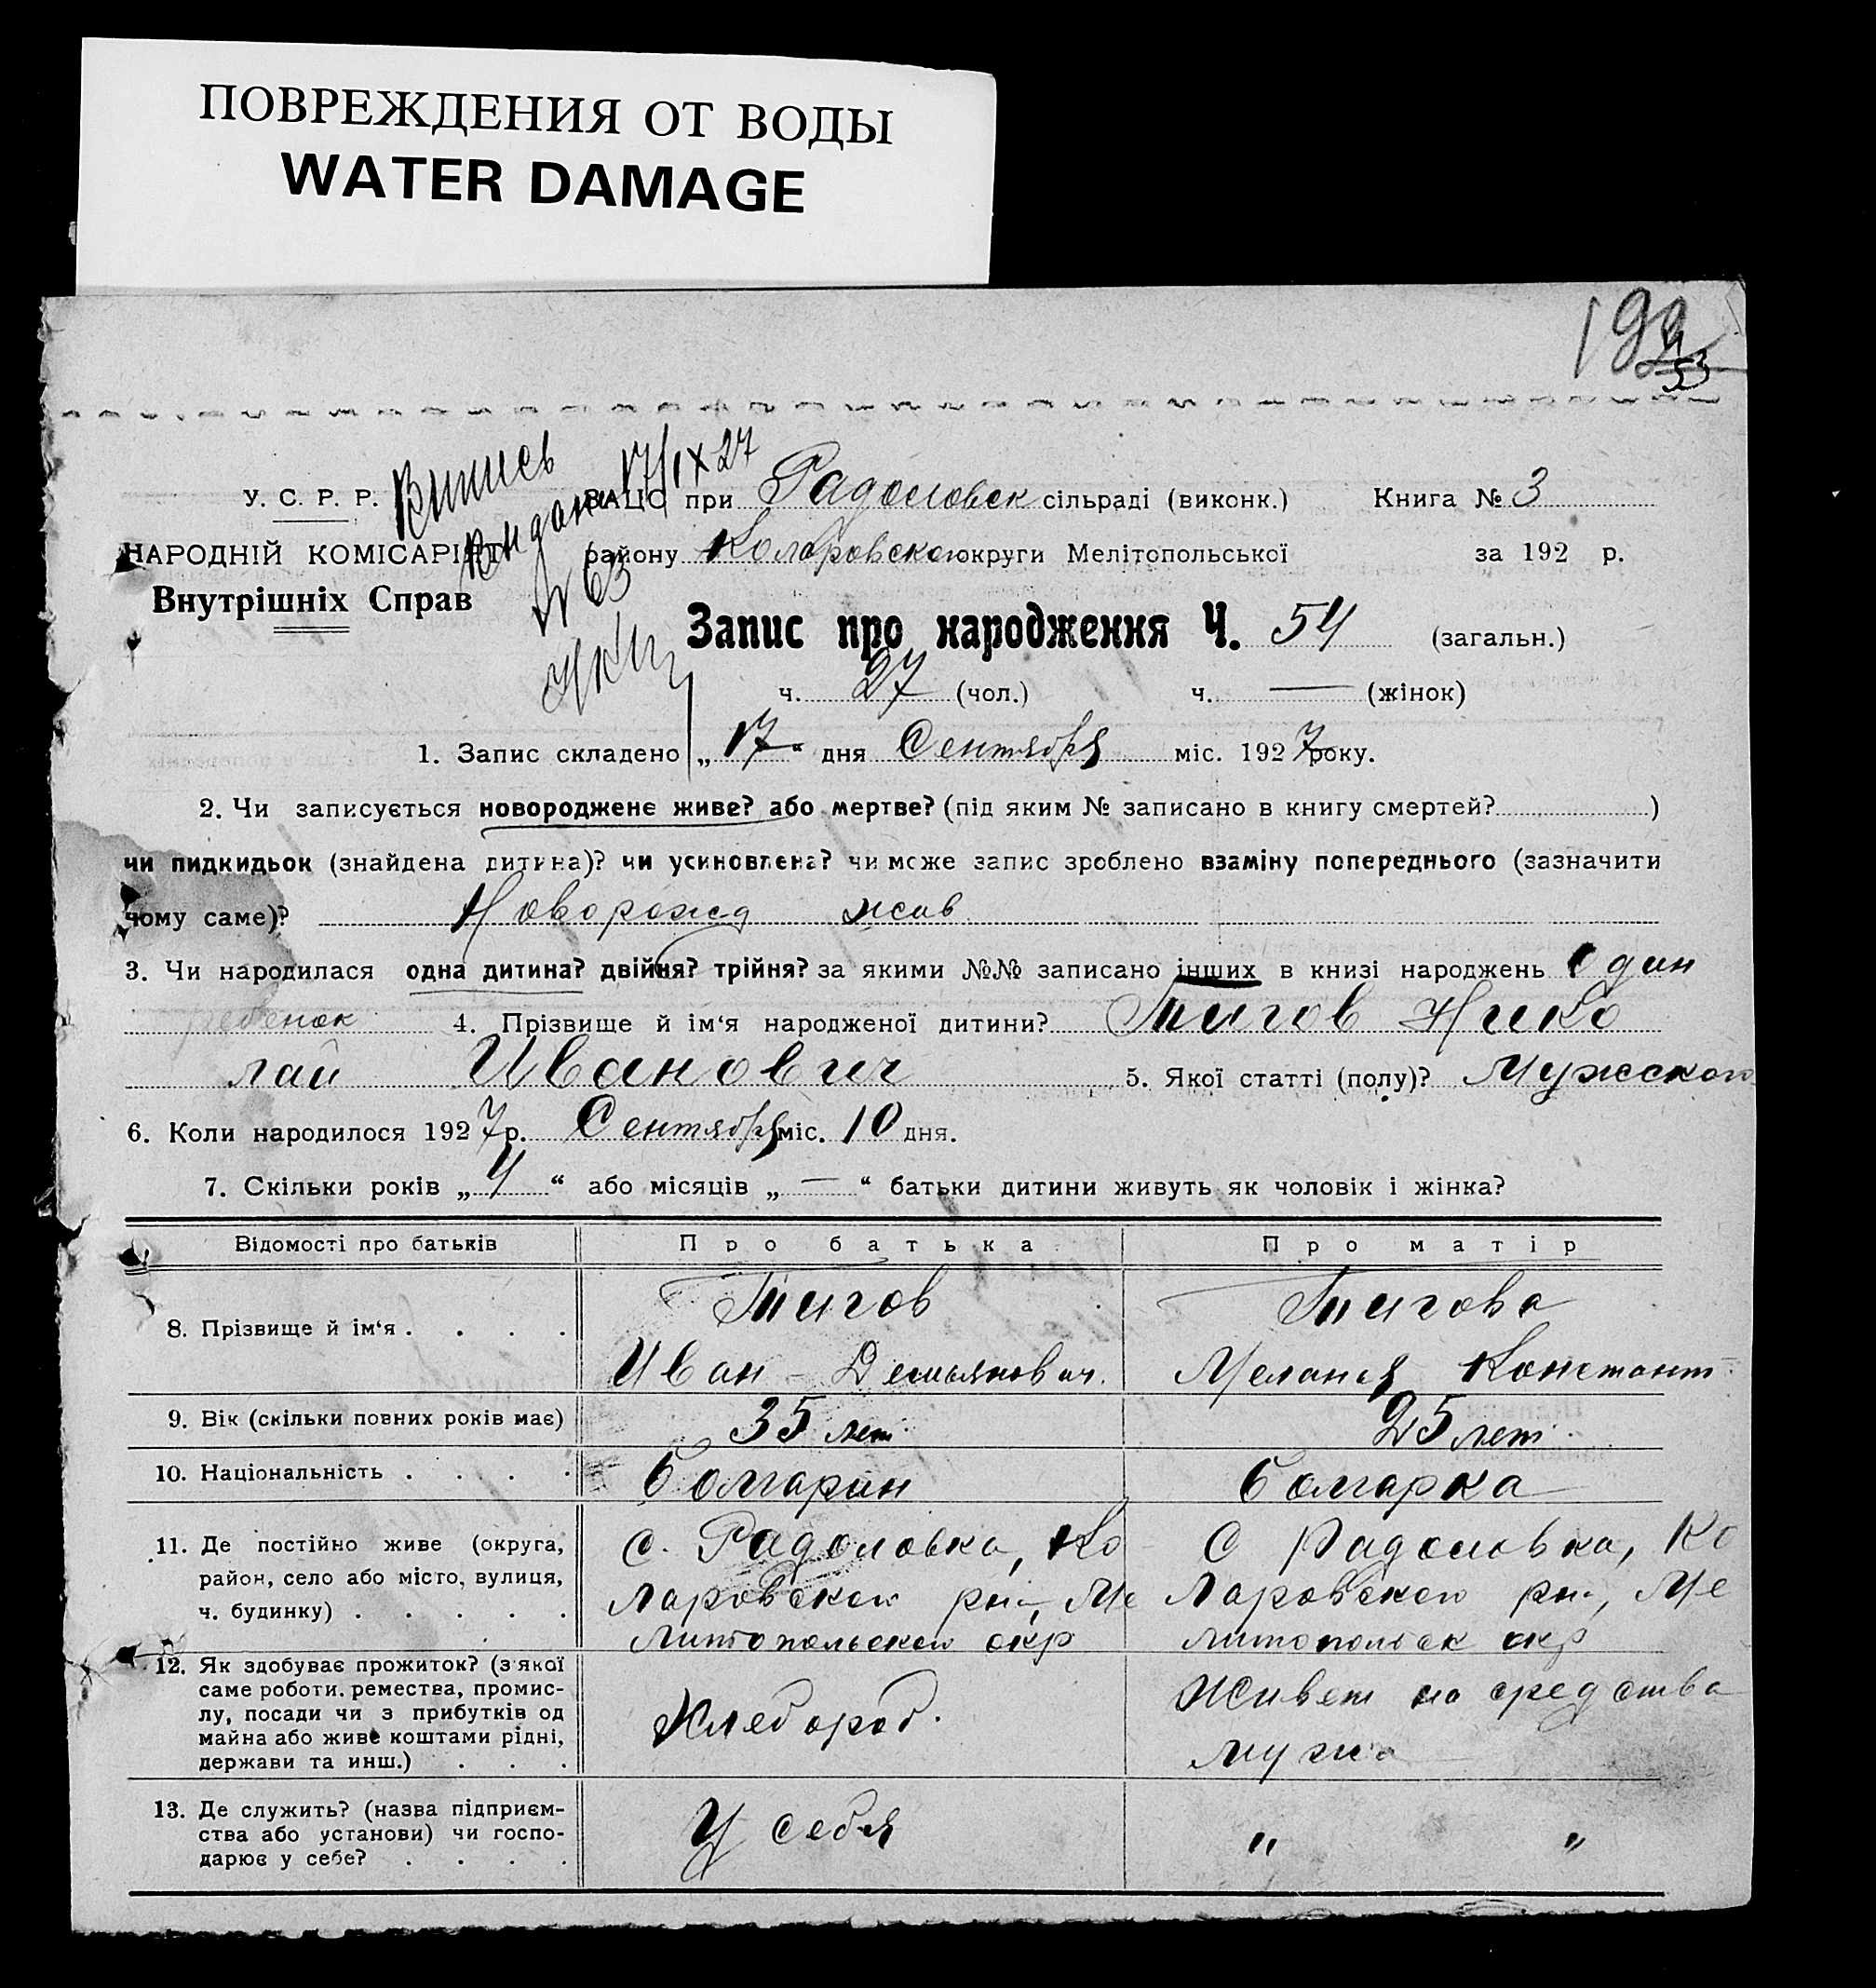 ПОВРЕЖДЕНИЯ ОТ ВОДЫ
WATER DAMAGE
У. С. Р. Р.
НАРОДНІЙ КОМІСАРІЯТ
Внутрішніх Справ
Випись
видана 17/IX 27
№ 63
ЗАЦС при Радоловск сільраді (виконк.) Книга № 3
району Коларовского округи Мелітопольської за 192 р.
Запис про народження Ч. 54 (загальн.)
ч. 27 (чол.) ч. — (жінок)
1. Запис складено „17“ дня Сентября міс. 1927 року.
2. Чи записується новороджене живе? або мертве? (під яким № записано в книгу смертей? )
чи пидкидьок (знайдена дитина)? чи усиновлена? чи може запис зроблено взаміну попереднього (зазначити
чому саме)? Новорожд жив
3. Чи народилася одна дитина? двійня? трійня? за якими №№ записано інших в книзі народжень один
ребенок 4. Прізвище й ім‘я народженої дитини? Тигов Нико
лай Иванович 5. Якої статті (полу)? Мужской
6. Коли народилося 1927 р. Сентября міс. 10 дня.
7. Скільки років „4“ або місяців „—“ батьки дитини живуть як чоловік і жінка?
Відомості про батьків Про батька Про матір
8. Прізвище й ім‘я . . . .
Тигов
Иван Демьянович.
Тигова
Мелания Констант
9. Вік (скільки повних років має) 35 лет 25 лет
10. Національність . . . . болгарин болгарка
11. Де постійно живе (округа,
район, село або місто, вулиця,
ч. будинку) . . . . .
с. Радоловка, Ко
ларовского рн, Ме
литопольской окр
С Радоловка, Ко
ларовского рн, Ме
литопольск окр
12. Як здобуває прожиток? (з якої
саме роботи. ремества, промис-
лу, посади чи з прибутків од
майна або живе коштами рідні,
держави та инш.) . . .
Хлебороб.
Живет на средства
мужа
13. Де служить? (назва підприєм-
ства або установи) чи госпо-
дарює у себе? . . . .
У себя
" "